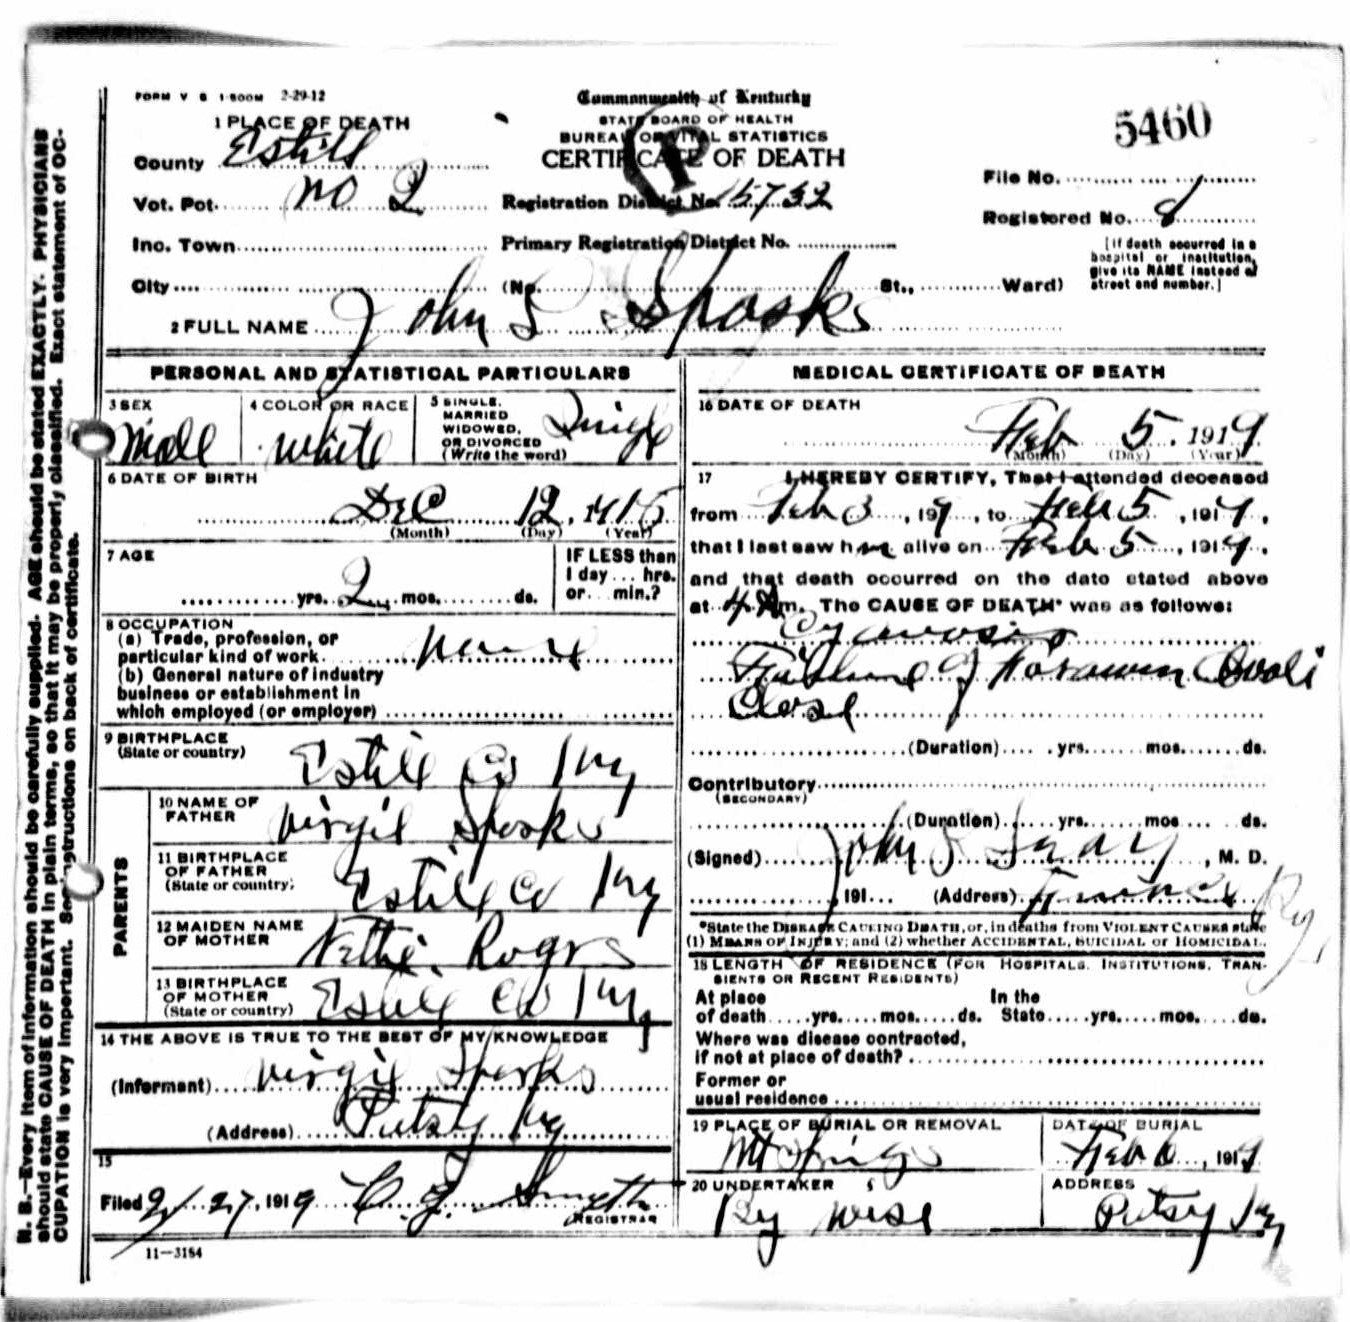 FORM V S 1-500M 2-29-12
Commonwealth of Kentucky
STATE BOARD OF HEALTH
BUREAU OF VITAL STATISTICS
CERTIFICATE OF DEATH
5460
1 PLACE OF DEATH
County Estill
Vot. Pct. No 2
Registration District No. 5732
File No.
Registered No. 8
Inc. Town
Primary Registration District No.
City (No. St., Ward)
[If death occurred in a
hospital or institution,
give its NAME instead of
street and number.]
2 FULL NAME John S Sparks
PERSONAL AND STATISTICAL PARTICULARS
3 SEX
Male
4 COLOR OR RACE
White
5 SINGLE,
MARRIED
WIDOWED,
OR DIVORCED
(Write the word)
Single
6 DATE OF BIRTH
Dec 12, 191
(Month) (Day) (Year)
7 AGE
yrs. 2 mos. ds.
IF LESS than
1 day ... hrs.
or ... min.?
8 OCCUPATION
(a) Trade, profession, or
particular kind of work None
(b) General nature of industry
business or establishment in
which employed (or employer)
9 BIRTHPLACE
(State or country)
Estill Co Ky
PARENTS
10 NAME OF
FATHER
Virgil Sparks
11 BIRTHPLACE
OF FATHER
(State or country)
Estill Co Ky
12 MAIDEN NAME
OF MOTHER
Nettie Rogers
13 BIRTHPLACE
OF MOTHER
(State or country)
Estill Co Ky
14 THE ABOVE IS TRUE TO THE BEST OF MY KNOWLEDGE
(Informant) Virgil Sparks
(Address) Putsy Ky
15
Filed 2/27, 1919 C. J. Smyth
REGISTRAR
11—3184
MEDICAL CERTIFICATE OF DEATH
16 DATE OF DEATH
Feb 5, 1919
(Month) (Day) (Year)
17 I HEREBY CERTIFY, That I attended deceased
from Feb 3, 199, to Feb 5, 1919,
that I last saw him alive on Feb 5, 1919,
and that death occurred on the date stated above
at 4 Am. The CAUSE OF DEATH* was as follows:
Cyanosis
Failure of Foramen Ovali
Close
(Duration) yrs. mos. ds.
Contributory
(SECONDARY)
(Duration) yrs. mos. ds.
(Signed) John S , M. D.
, 191 (Address) Ky
*State the DISEASE CAUSING DEATH, or, in deaths from VIOLENT CAUSES state
(1) MEANS OF INJURY; and (2) whether ACCIDENTAL, SUICIDAL or HOMICIDAL.
18 LENGTH OF RESIDENCE (FOR HOSPITALS, INSTITUTIONS, TRAN-
SIENTS OR RECENT RESIDENTS)
At place
of death yrs. mos. ds.
In the
State yrs. mos. ds.
Where was disease contracted,
if not at place of death?
Former or
usual residence
19 PLACE OF BURIAL OR REMOVAL
Mt Springs
DATE OF BURIAL
Feb 6, 1919
20 UNDERTAKER
By Wise
ADDRESS
Putsy Ky
N. B.—Every item of information should be carefully supplied. AGE should be stated EXACTLY. PHYSICIANS
should state CAUSE OF DEATH in plain terms, so that it may be properly classified. Exact statement of OC-
CUPATION is very important. See instructions on back of certificate.